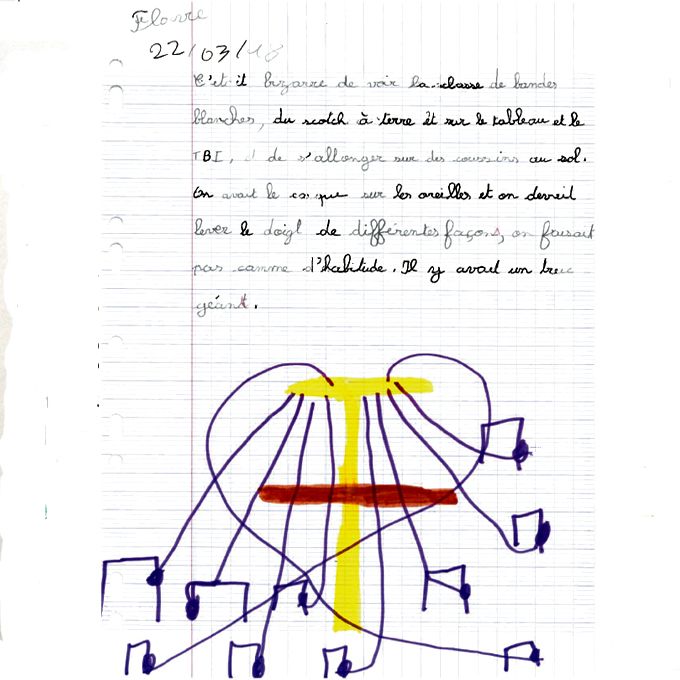 Flavie
22/03/18
C'et it bizarre de voir la classe de bandes
blanches, du scotch à terre et sur le tableau et le
TBI, de s'allonger sur des coussins au sol.
On avait le casque sur les oreilles et on devait
lever le doigt de différentes façons, on faisait
pas comme d'habitude. Il y avait un truc
géant.